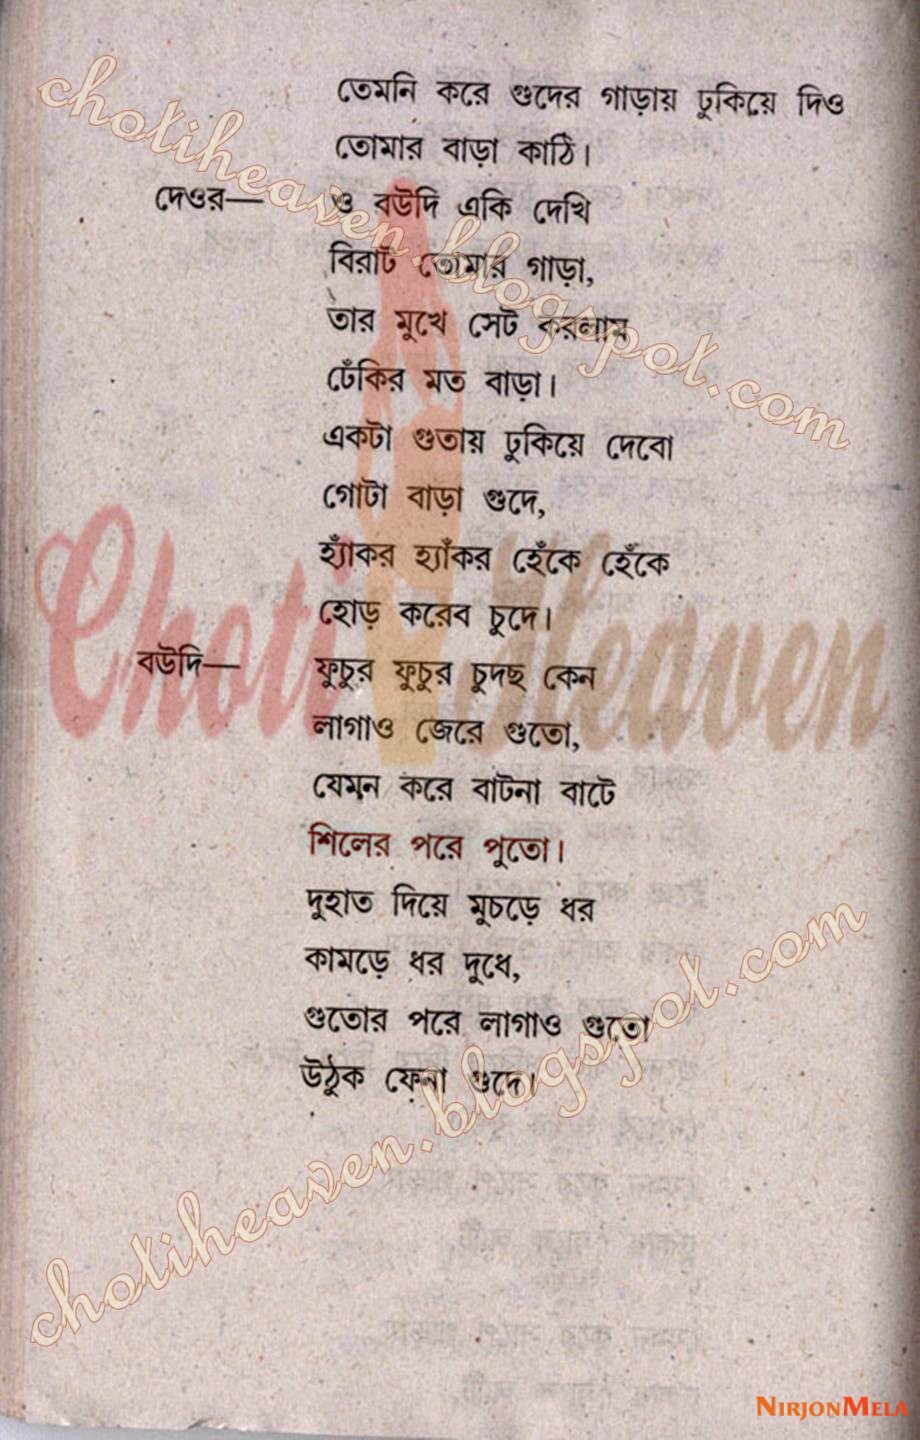 তেমনি করে গুদের গাড়ায় ঢুকিয়ে দিও
তোমার বাড়া কাঠি।
দেওর— ও বউদি একি দেখি
বিরাট তোমার গাড়া,
তার মুখে সেট করলাম
ঢেঁকির মত বাড়া।
একটা গুতায় ঢুকিয়ে দেবো
গোটা বাড়া গুদে,
হ্যাঁকর হ্যাঁকর হেঁকে হেঁকে
হোড় করেব চুদে।
বউদি— ফুচুর ফুচুর চুদছ কেন
লাগাও জেরে গুতো,
যেমন করে বাটনা বাটে
শিলের পরে পুতো।
দুহাত দিয়ে মুচড়ে ধর
কামড়ে ধর দুধে,
গুতোর পরে লাগাও গুতো
উঠুক ফেনা গুদে।
chotiheaven.blogspot.com
Choti Heaven
chotiheaven.blogspot.com
NIRJONMELA